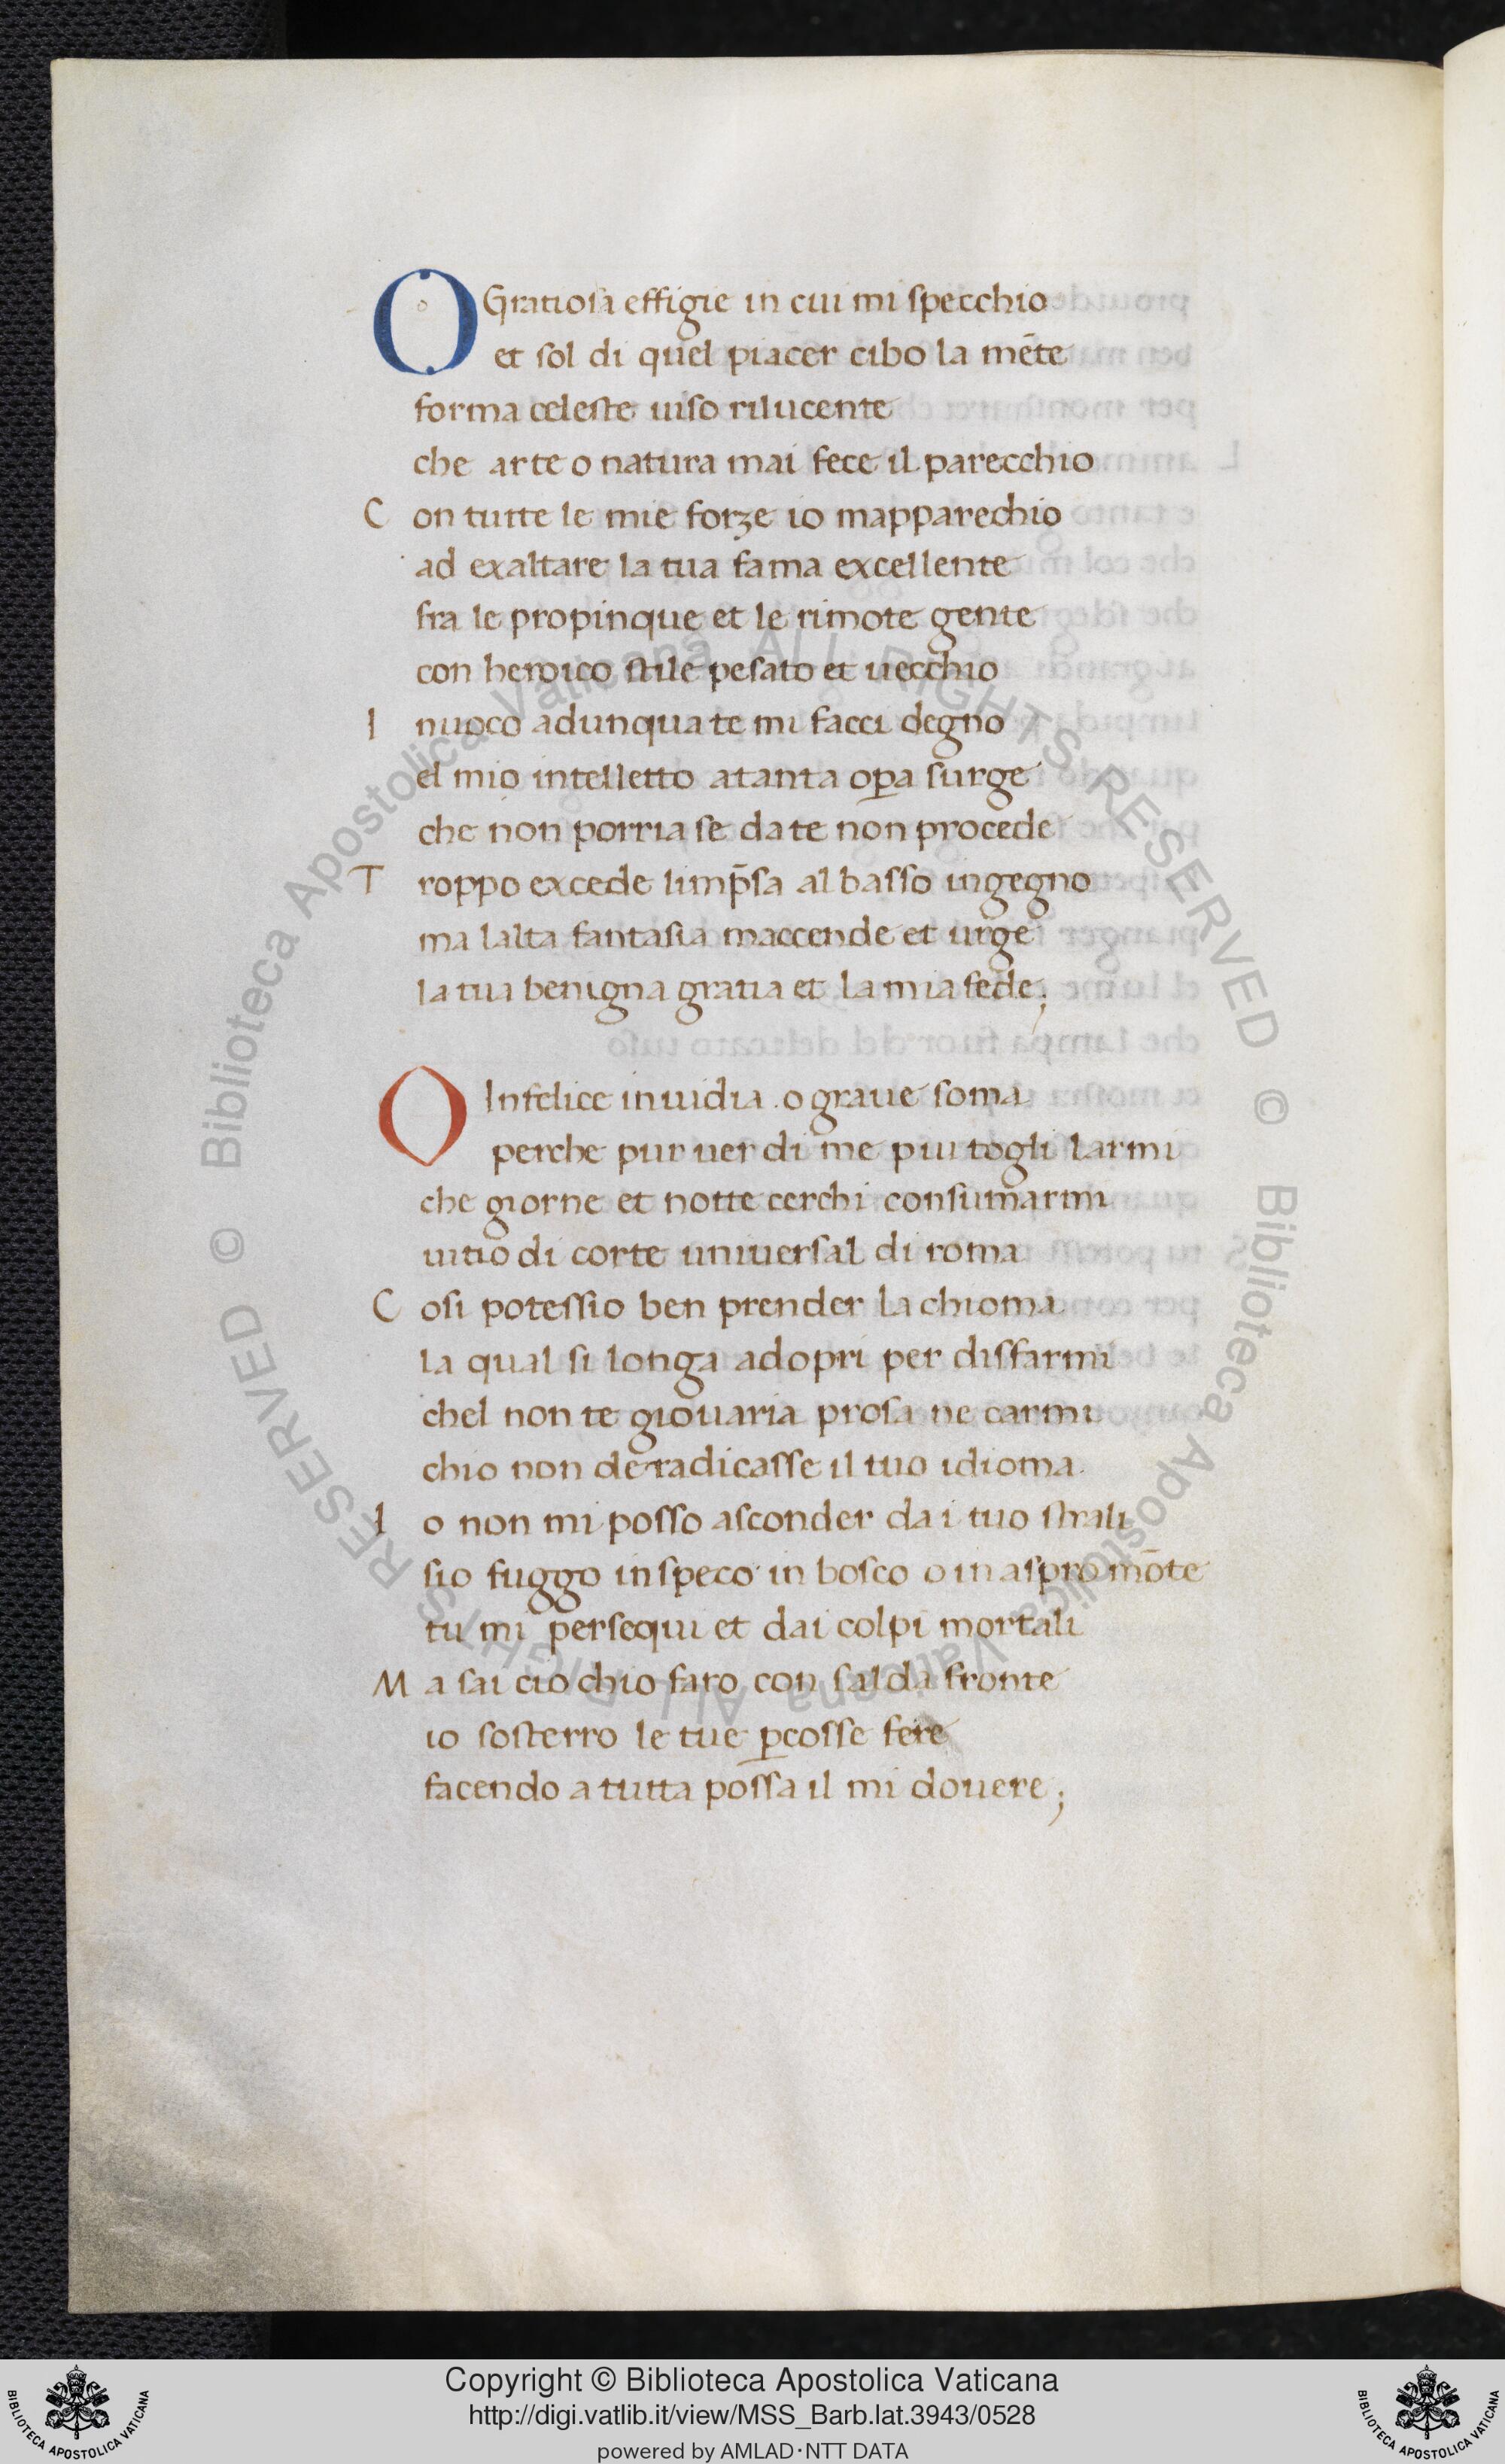 O Gratiosa effigie in cui mi specchio
et sol di quel piacer cibo la mēte
forma celeste uiso rilucente
che arte o natura mai fece il parecchio
C on tutte le mie forze io mapparechio
ad exaltare la tua fama excellente
fra le propinque et le rimote gente
con heroico stile pesato et uecchio
I nuoco adunqua te mi facci degno
el mio intelletto atanta oꝑa surge
che non porria se da te non procede
T roppo excede limp̄sa al basso ingegno
ma lalta fantasia maccende et urge
la tua benigna gratia et la mia fede;
O Infelice inuidia . o graue soma
perche pur uer di me piu togli larmi
che giorne et notte cerchi consumarmi
uitio di corte uniuersal di roma
C osi potessio ben prender la chioma
la qual si longa adopri per disfarmi
chel non te giouaria prosa ne carmi
chio non deradicasse il tuo idioma
I o non mi posso asconder da i tuo strali
sio fuggo in speco in bosco o in aspro mōte
tu mi persequi et dai colpi mortali
M a sai cio chio faro con salda fronte
io sosterro le tue ꝑcosse fere
facendo a tutta possa il mi douere;
© Biblioteca Apostolica Vaticana ALL RIGHTS RESERVED © Biblioteca Apostolica Vaticana ALL RIGHTS RESERVED
BIBLIOTECA APOSTOLICA VATICANA
Copyright © Biblioteca Apostolica Vaticana
http://digi.vatlib.it/view/MSS_Barb.lat.3943/0528
powered by AMLAD·NTT DATA
BIBLIOTECA APOSTOLICA VATICANA